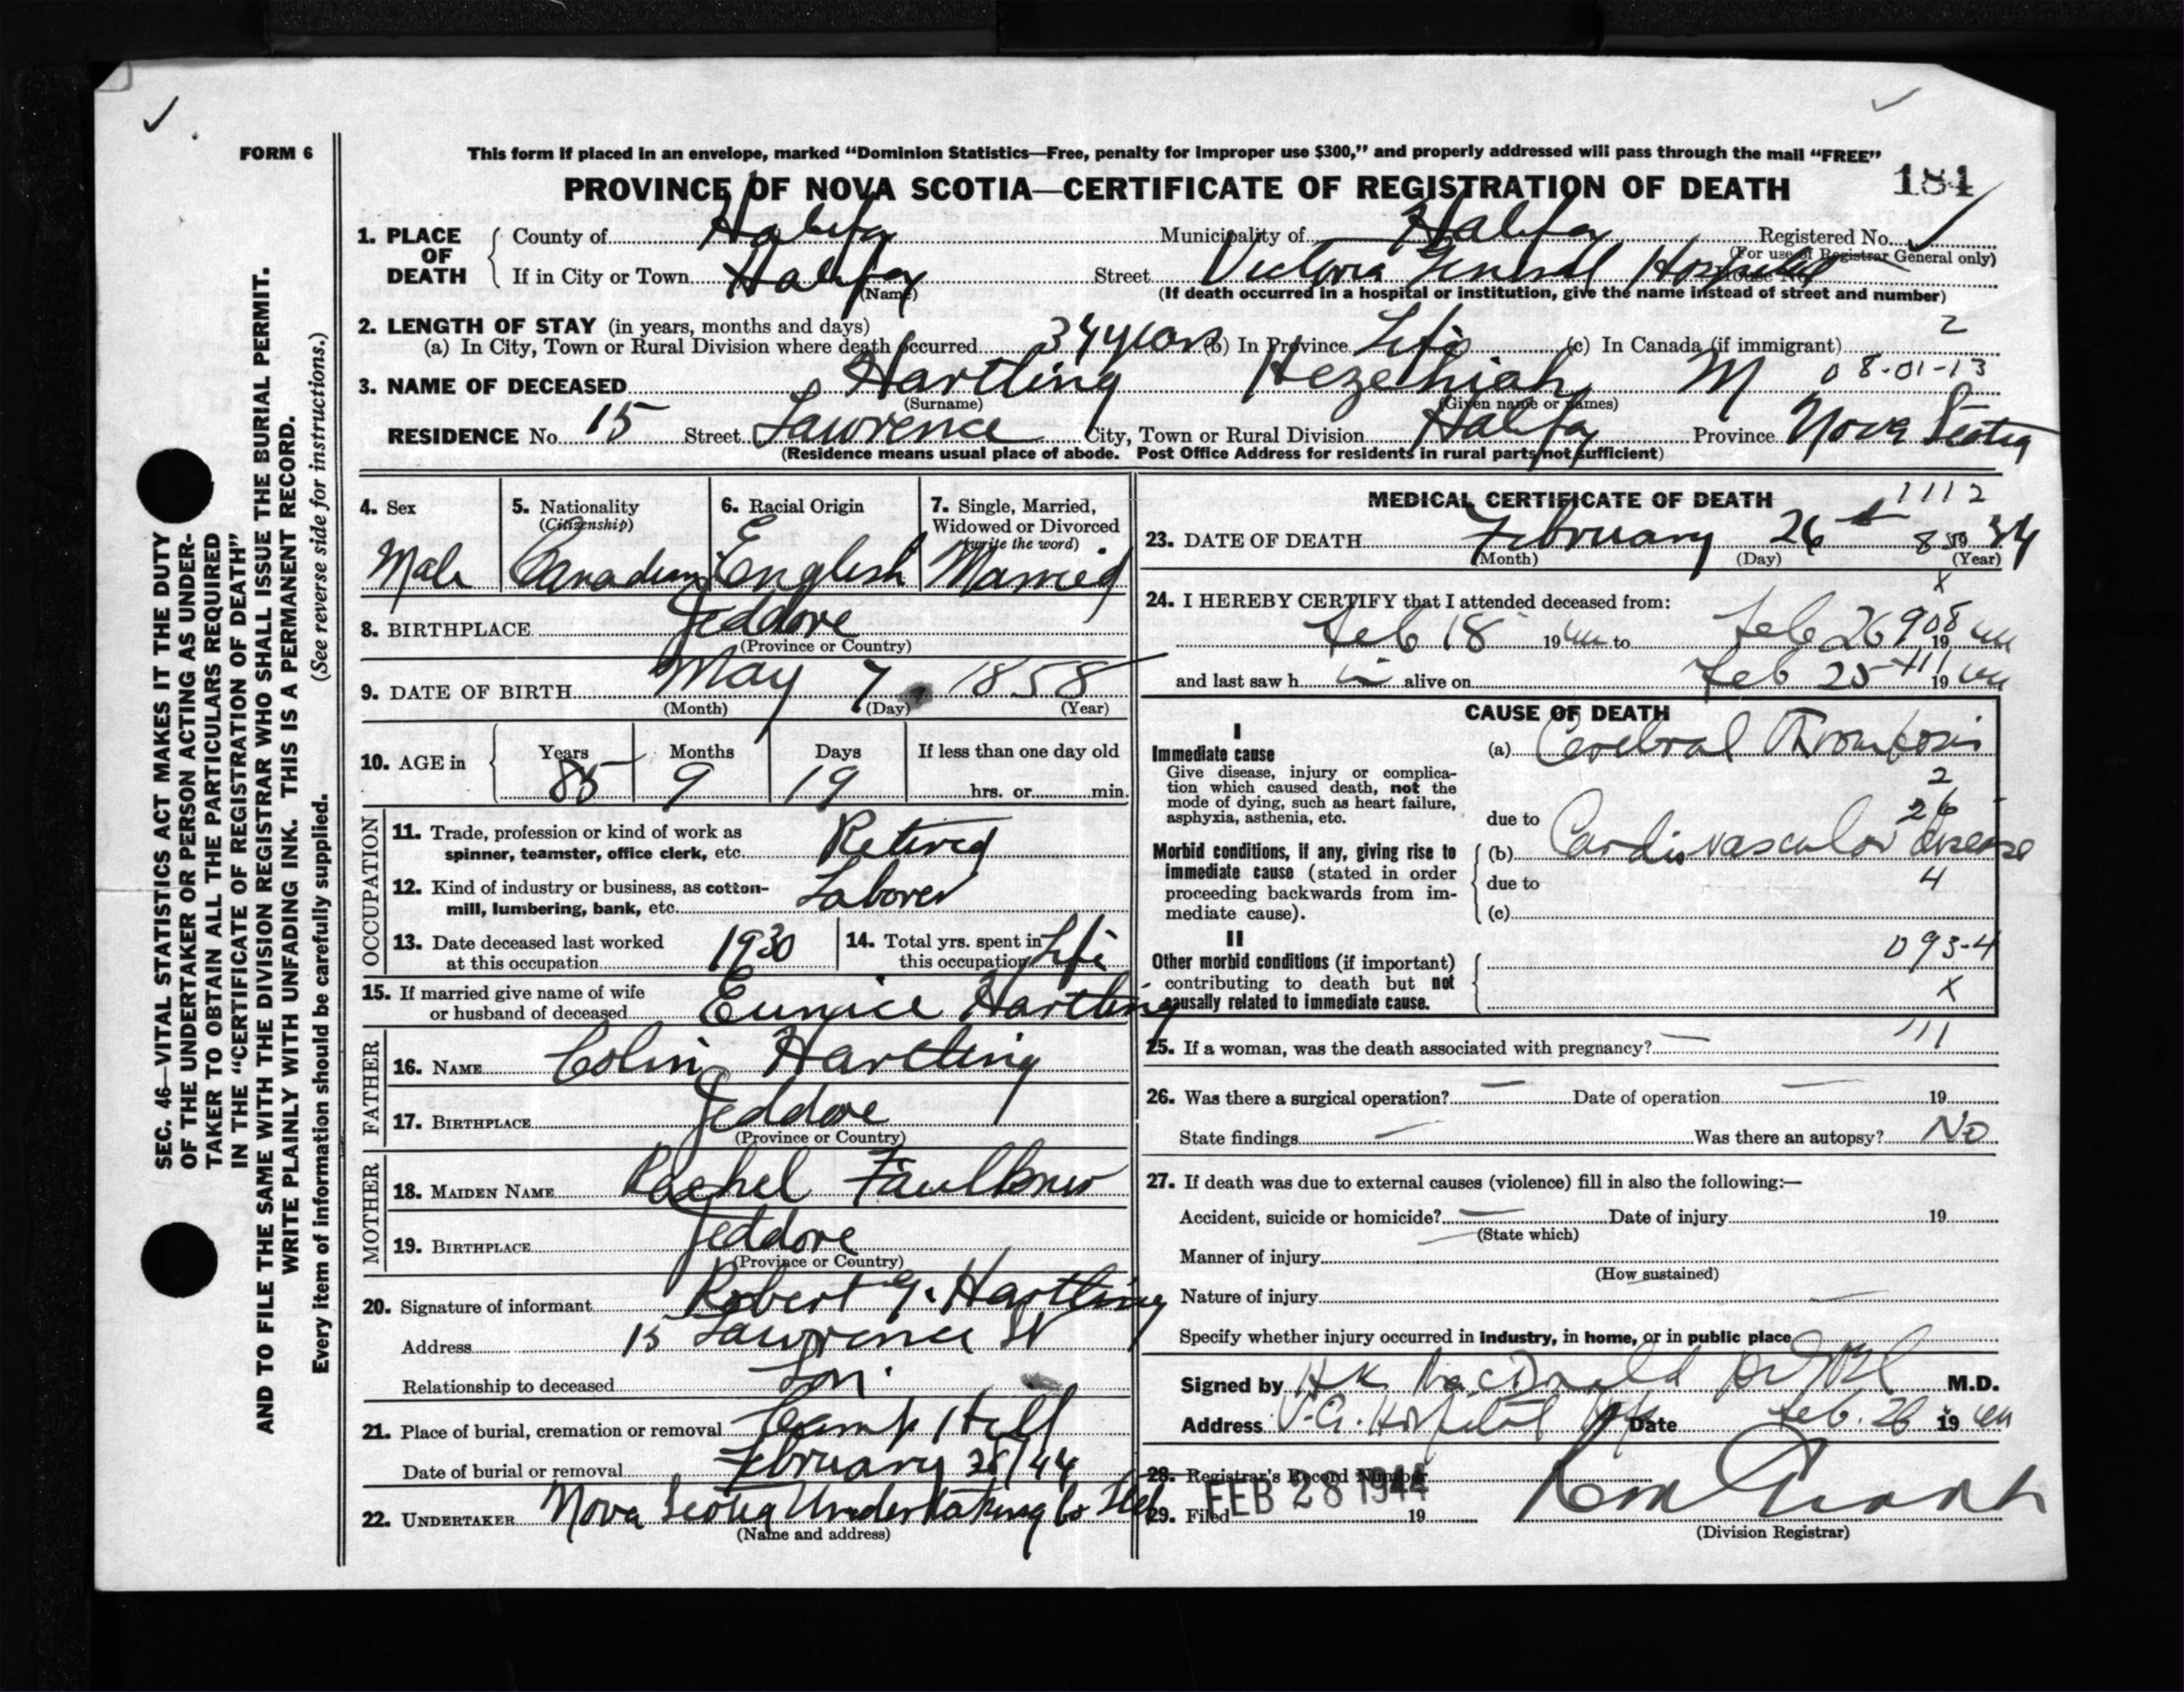 FORM 6
This form if placed in an envelope, marked “Dominion Statistics—Free, penalty for improper use $300,” and properly addressed will pass through the mail “FREE”
PROVINCE OF NOVA SCOTIA—CERTIFICATE OF REGISTRATION OF DEATH 181
1. PLACE OF DEATH County of Halifax Municipality of Halifax Registered No.
(For use of Registrar General only)
If in City or Town Halifax Street Victoria General Hospital
(Name) (If death occurred in a hospital or institution, give the name instead of street and number)
2. LENGTH OF STAY (in years, months and days) 2
(a) In City, Town or Rural Division where death occurred 34 years (b) In Province Life (c) In Canada (if immigrant)
3. NAME OF DECEASED Hartling Hezekiah M 08-01-13
(Surname) (Given name or names)
RESIDENCE No. 15 Street Lawrence City, Town or Rural Division Halifax Province Nova Scotia
(Residence means usual place of abode. Post Office Address for residents in rural parts not sufficient)
4. Sex 5. Nationality 6. Racial Origin 7. Single, Married,
(Citizenship) Widowed or Divorced
(write the word)
Male Canadian English Married
8. BIRTHPLACE Jeddore
(Province or Country)
9. DATE OF BIRTH May 7 1858
(Month) (Day) (Year)
10. AGE in Years Months Days If less than one day old
85 9 19 hrs. or min.
OCCUPATION
11. Trade, profession or kind of work as
spinner, teamster, office clerk, etc. Retired
12. Kind of industry or business, as cotton-
mill, lumbering, bank, etc. Laborer
13. Date deceased last worked 14. Total yrs. spent in
at this occupation 1930 this occupation Life
15. If married give name of wife
or husband of deceased Eunice Hartling
FATHER
16. NAME Colin Hartling
17. BIRTHPLACE Jeddore
(Province or Country)
MOTHER
18. MAIDEN NAME Rachel Faulkner
19. BIRTHPLACE Jeddore
(Province or Country)
20. Signature of informant Robert G. Hartling
Address 15 Lawrence St
Relationship to deceased Son.
21. Place of burial, cremation or removal Camp Hill
Date of burial or removal February 28/44
22. UNDERTAKER Nova Scotia Undertaking Co
(Name and address)
MEDICAL CERTIFICATE OF DEATH 1112
23. DATE OF DEATH February 26th
(Month) (Day) (Year)
X
24. I HEREBY CERTIFY that I attended deceased from:
Feb 18 19 44 to Feb 26 908 19 44
and last saw h im alive on Feb 25 111 19 44
CAUSE OF DEATH
I
Immediate cause (a) Cerebral Thrombosis
Give disease, injury or complica-
tion which caused death, not the 2
mode of dying, such as heart failure, 26
asphyxia, asthenia, etc. due to
Morbid conditions, if any, giving rise to (b) Cardiovascular disease
immediate cause (stated in order due to 4
proceeding backwards from im-
mediate cause). (c)
II
Other morbid conditions (if important) 093-4
contributing to death but not
causally related to immediate cause. X
111
25. If a woman, was the death associated with pregnancy? —
26. Was there a surgical operation? — Date of operation — 19
State findings — Was there an autopsy? No
27. If death was due to external causes (violence) fill in also the following:—
Accident, suicide or homicide? — Date of injury 19
(State which)
Manner of injury
(How sustained)
Nature of injury —
Specify whether injury occurred in industry, in home, or in public place
Signed by H K MacDonald M.D.
Address V.G. Hospital Date Feb. 26 19 44
28. Registrar's Record Number
FEB 28 1944
29. Filed 19
(Division Registrar)
SEC. 46—VITAL STATISTICS ACT MAKES IT THE DUTY
OF THE UNDERTAKER OR PERSON ACTING AS UNDER-
TAKER TO OBTAIN ALL THE PARTICULARS REQUIRED
IN THE “CERTIFICATE OF REGISTRATION OF DEATH”
AND TO FILE THE SAME WITH THE DIVISION REGISTRAR WHO SHALL ISSUE THE BURIAL PERMIT.
WRITE PLAINLY WITH UNFADING INK. THIS IS A PERMANENT RECORD.
Every item of information should be carefully supplied. (See reverse side for instructions.)